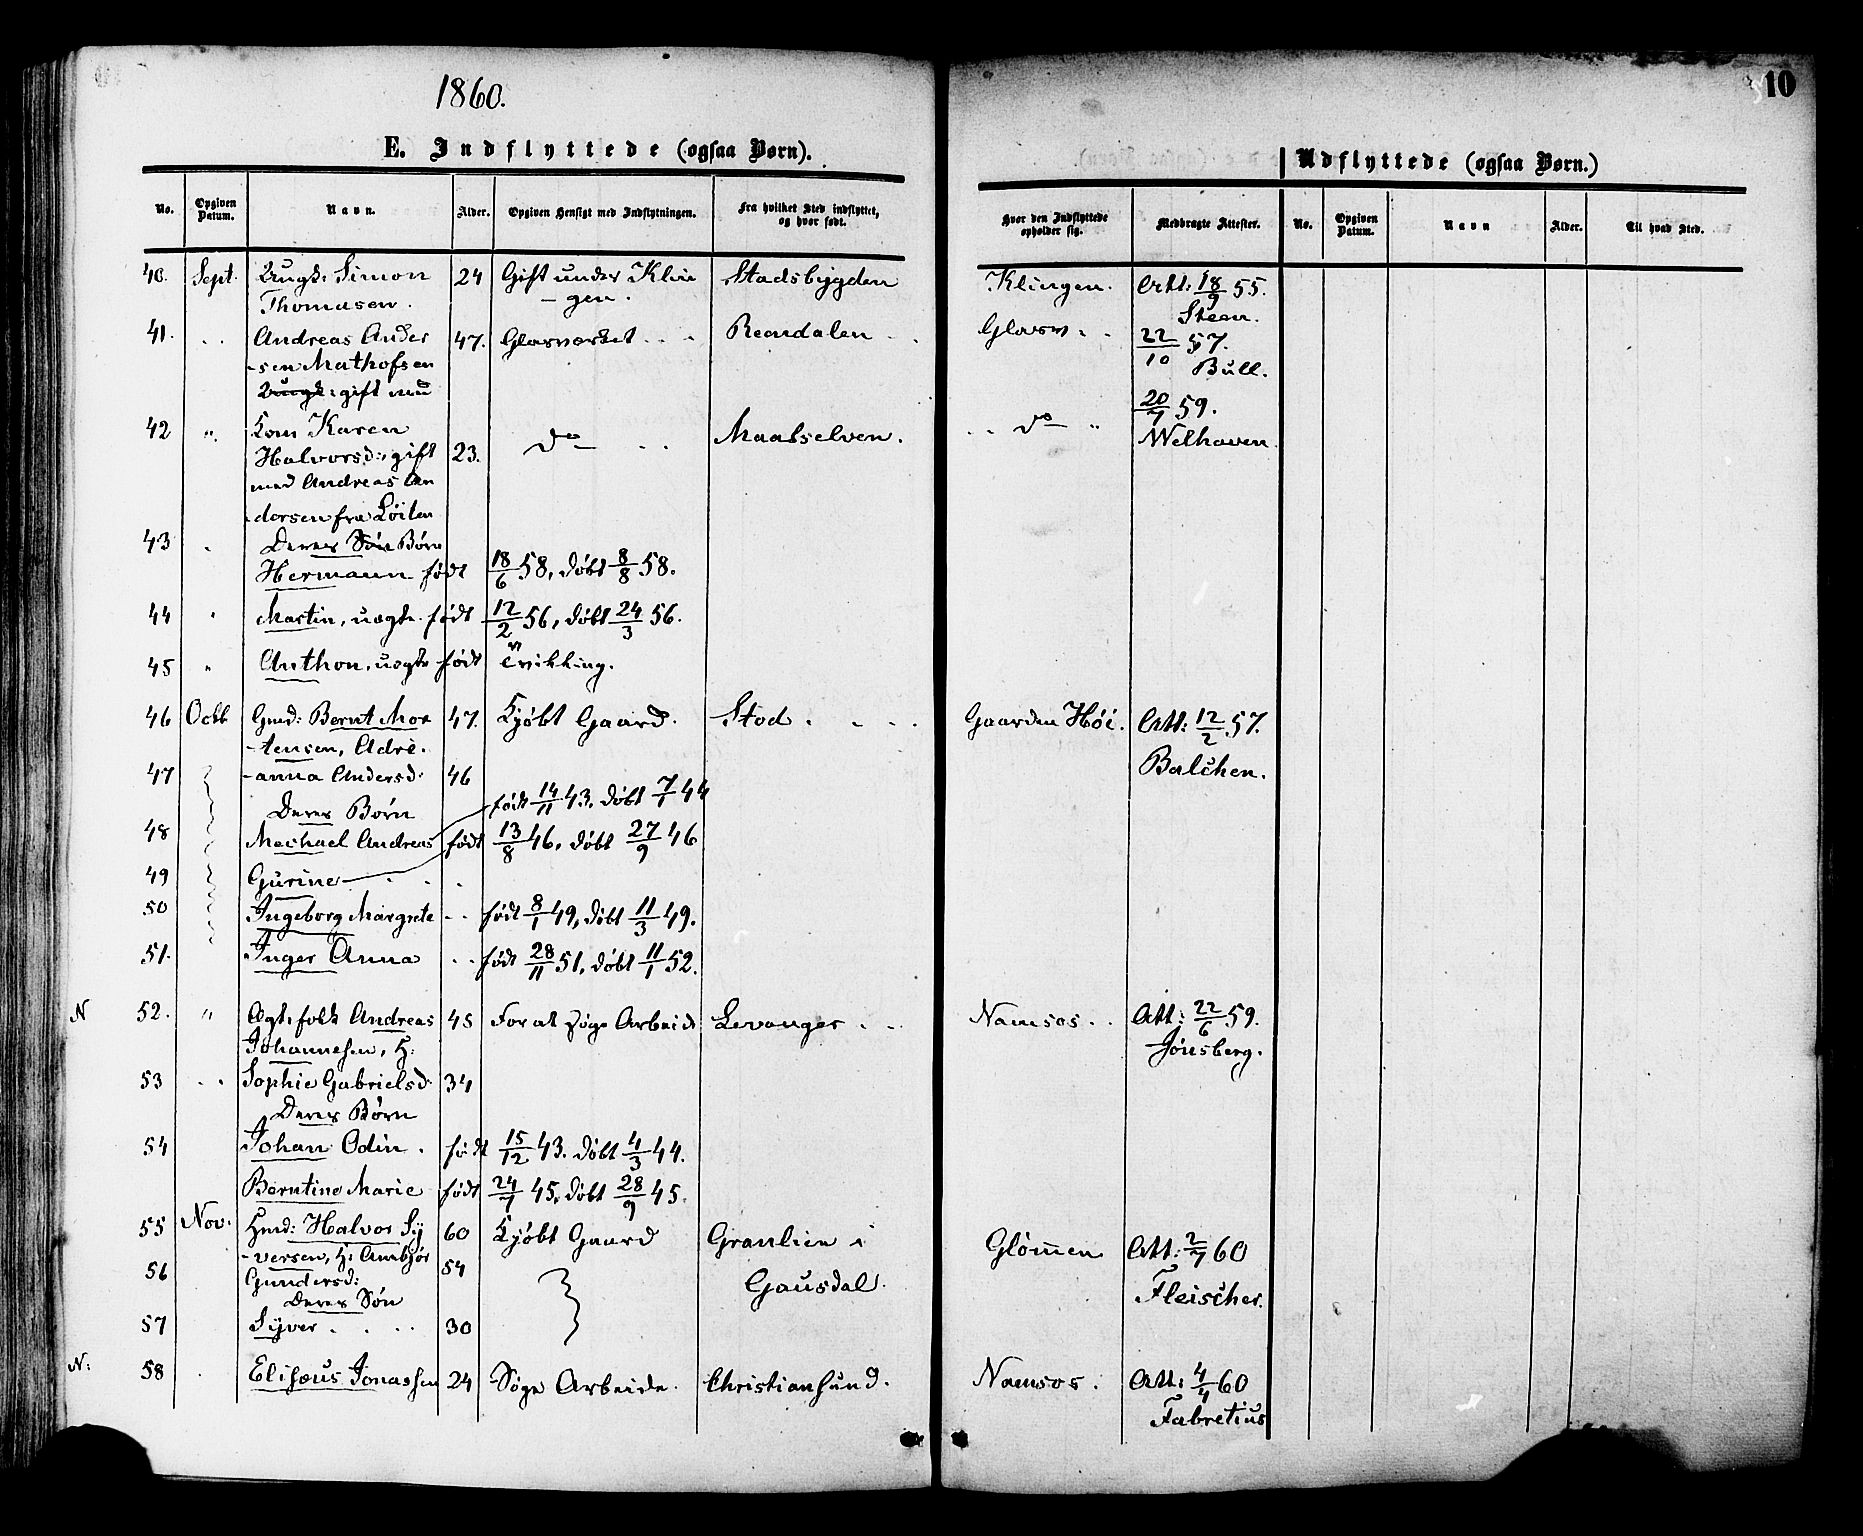 1860.
10
E. Indflyttede (ogsaa Børn).
Udflyttede (ogsaa Børn.)
No. Opgiven Datum. Navn. Alder. Opgiven Hensigt med Indflytningen. Fra hvilket Sted indflyttet, og hvor født. Hvor den Indflyttede opholder sig. Medbragte Attester. No. Opgiven Datum. Navn Alder. Til hvad Sted.
40. Sept. Ungk: Simon 24 Gift under Klin Stadsbygden Klingen. Att: 18/9 55.
Thomasen. -gen. Steen.
41. Andreas Ander 47. Glasværket Rendalen Glasv. 22/10 57.
-sen Mathofsen Bull.
Ungk: gift med
42 " Kom Karen do Maalselven. do " 20/7 59.
Halvorsd: gift 23. Welhaven
med Andreas An
dersen fra Løiten
43 Deres Søn Børn
Hermann født 18/6 58, døbt 8/8 58.
44 " Martin, uægte født 12/2 56, døbt 24/3 56.
45 " Anthon, uægte født Tvilling.
46 Octb Gmd: Bernt Mor 47. Kjøbt Gaard. Stod Gaarden Høi. Att: 12/2 57.
-tensen, Adri. Balchen.
47 -anna Andersd: 46
Deres Børn født 14/11 43. døbt 7/1 44
48 Mechael Andreas født 13/8 46, døbt 27/9 46
49 Gurine
50 Ingeborg Margrete født 8/1 49, døbt 11/3 49.
51. Inger Anna født 28/11 51, døbt 11/1 52.
N 52. " Ægtefolk Andreas 45 For at søge Arbeide Levanger Namsos Att: 22/6 59.
Johannesen, H: Jønsberg.
53 Sophie Gabrielsd: 34
Deres Børn
54 Johan Odin. født 15/12 43. døbt 4/3 44.
Berntine Marie født 24/7 45, døbt 28/9 45.
55 Nov. Hmd: Halvor Sy 60 Kjøbt Gaard Granlien i Glömmen Att: 2/7 60
-versen, H: Ambjør 54 Fleischer.
56 Gundersd: Gausdal.
Deres Søn
57 Syver 30
N: 58 Elisæus Jonassen 24 Søge Arbeide. Christiansund. Namsos. Att: 4/4 60
Fabretius